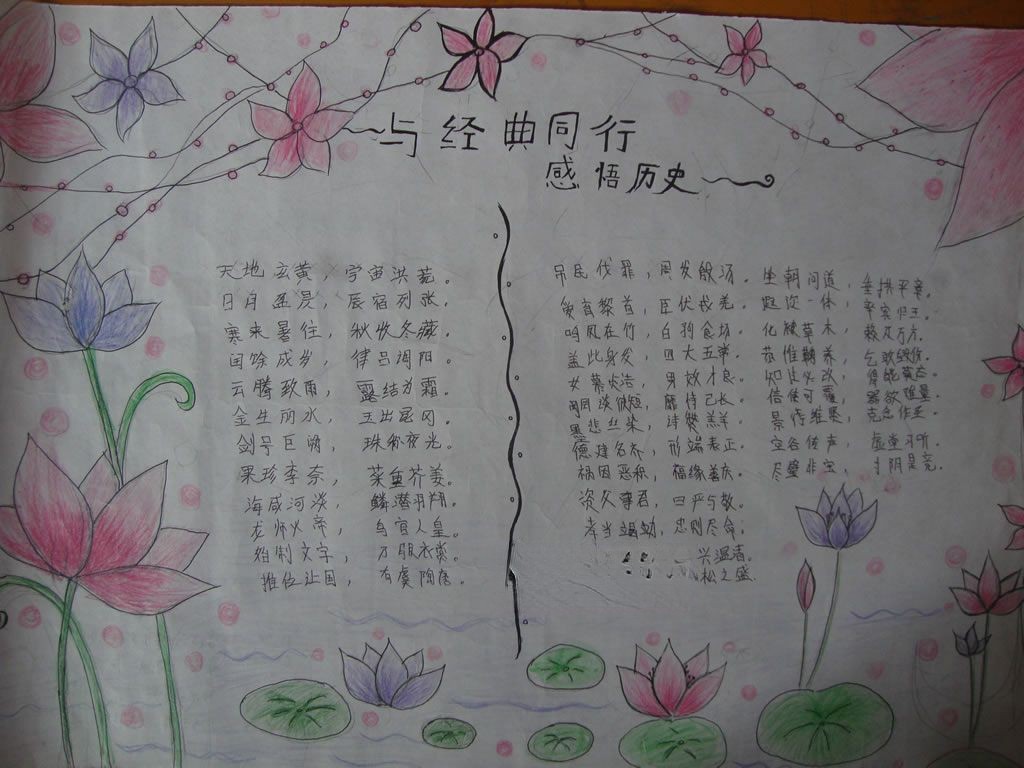 与经典同行
感悟历史
天地玄黄，宇宙洪荒。
日月盈昃，辰宿列张。
寒来暑往，秋收冬藏。
闰馀成岁，律吕调阳。
云腾致雨，露结为霜。
金生丽水，玉出昆冈。
剑号巨阙，珠称夜光。
果珍李奈，菜重芥姜。
海咸河淡，鳞潜羽翔。
龙师火帝，鸟官人皇。
始制文字，乃服衣裳。
推位让国，有虞陶唐。
吊民伐罪，周发殷汤。
爱育黎首，臣伏戎羌。
鸣凤在竹，白驹食场。
盖此身发，四大五常。
女慕贞洁，男效才良。
罔谈彼短，靡恃己长。
墨悲丝染，诗赞羔羊。
德建名立，形端表正。
祸因恶积，福缘善庆。
资父事君，曰严与敬。
孝当竭力，忠则尽命；
兴温凊。
松之盛
坐朝问道，垂拱平章。
遐迩一体，率宾归王。
化被草木，赖及万方。
恭惟鞠养，岂敢毁伤。
知过必改，得能莫忘。
信使可覆，器欲难量。
景行维贤，克念作圣。
空谷传声，虚堂习听。
尺璧非宝，寸阴是竞。